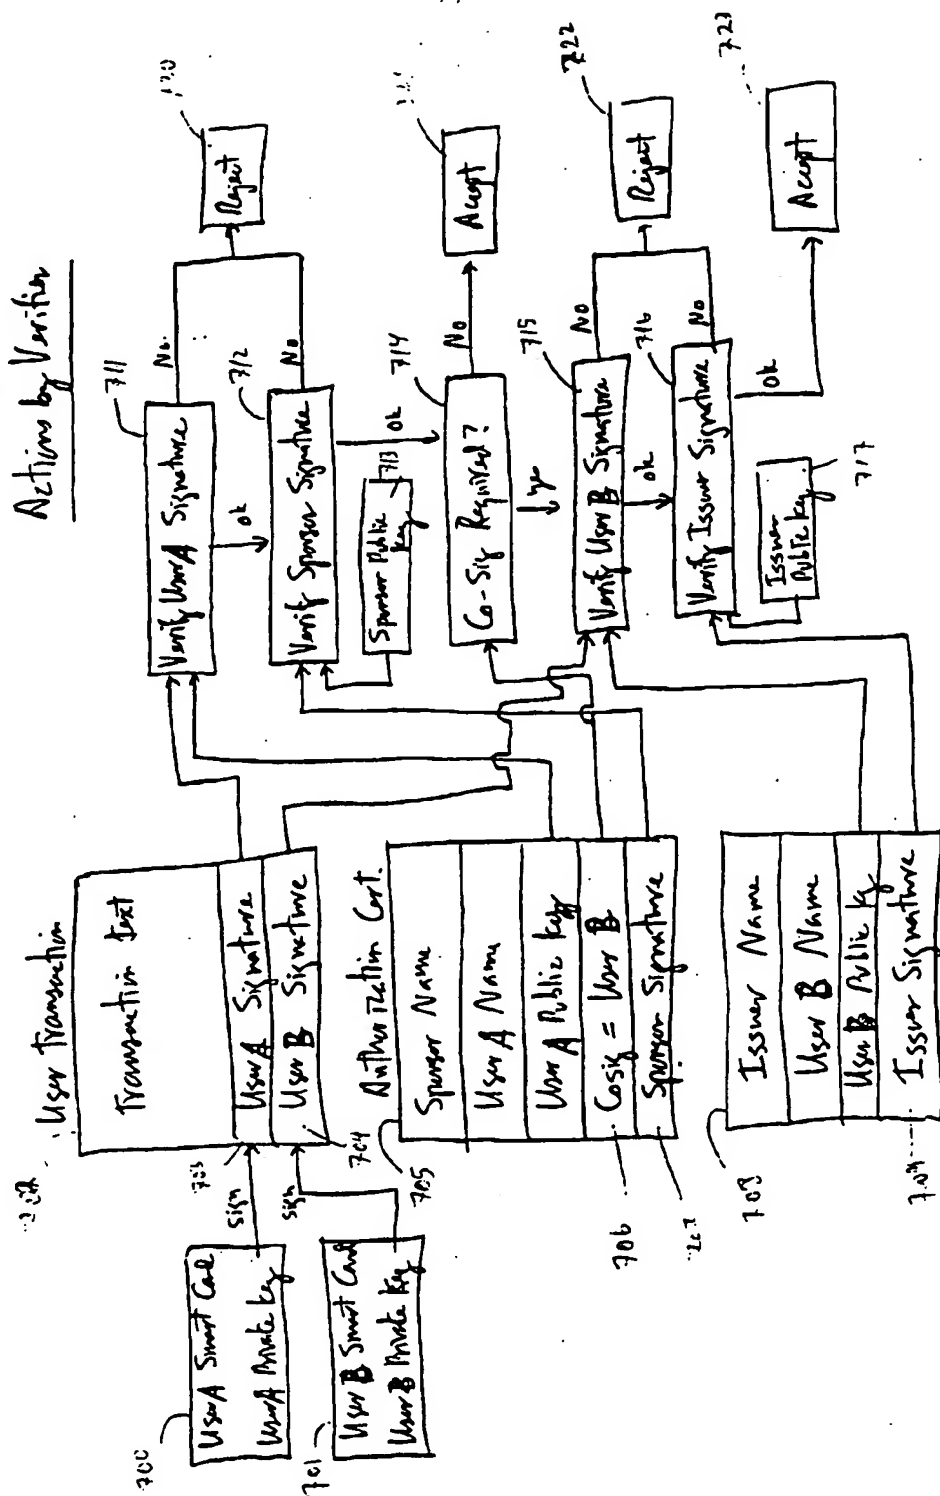 Actions by Verifier
User Transaction
Transaction Text
User A Signature
User B Signature
703
704
700
User A Smart Card
User A Private Key
sign
701
User B Smart Card
User B Private Key
sign
Authorization Cert.
705
Sponsor Name
User A Name
User A Public Key
Cosig = User B
Sponsor Signature
706
708
Issuer Name
User B Name
User B Public Key
Issuer Signature
711
Verify User A Signature
No.
ok
712
Verify Sponsor Signature
No
ok
Sponsor Public Key
713
714
Co-Sig Required?
No
yes
715
Verify User B Signature
No
ok
716
Verify Issuer Signature
No
ok
Issuer Public Key
717
Reject
Accept
722
Reject
723
Accept